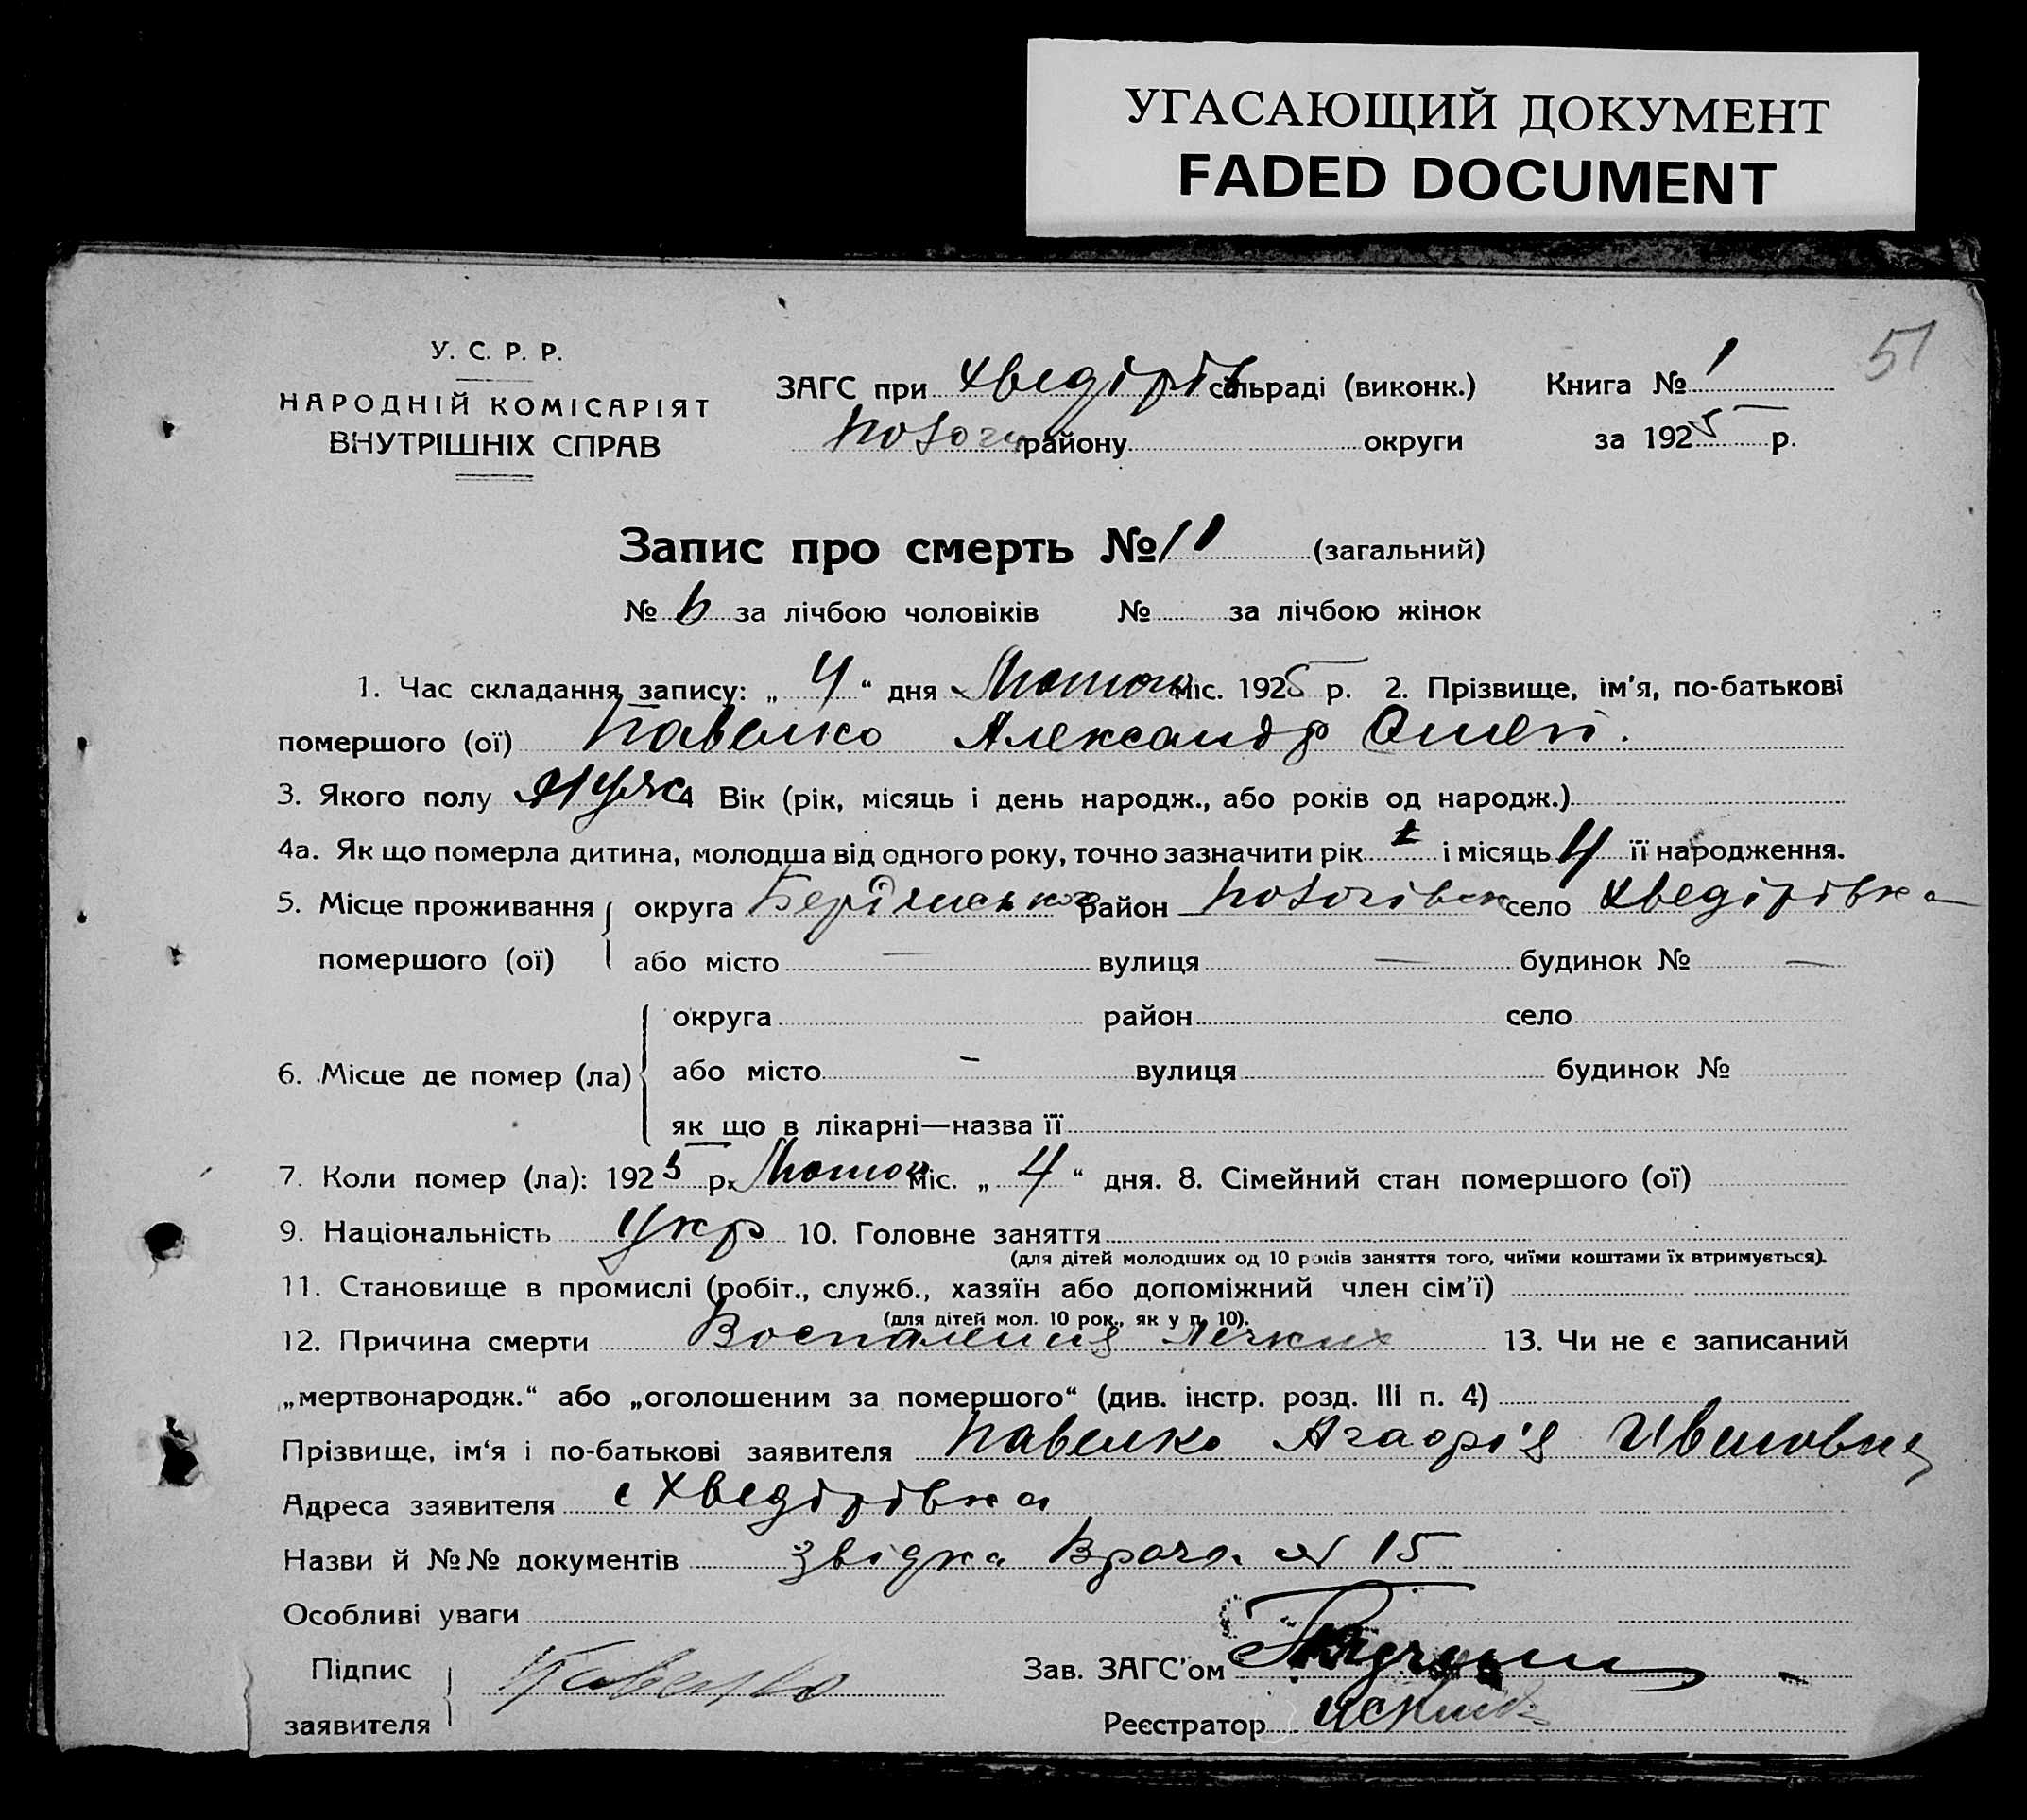 УГАСАЮЩИЙ ДОКУМЕНТ
FADED DOCUMENT
51
У. С. Р. Р.
НАРОДНІЙ КОМІСАРІЯТ
ВНУТРІШНІХ СПРАВ
ЗАГС при Хведірів сільраді (виконк.) Книга № 1
району округи за 1925 р.
Запис про смерть № 11 (загальний)
№ 6 за лічбою чоловіків № за лічбою жінок
1. Час складання запису: „ 4 “ дня Лютого міс. 1925 р. 2. Прізвище, ім'я, по-батькові
помершого (ої) Павелко Александр
3. Якого полу Муж 4 Вік (рік, місяць і день народж., або років од народж.)
4а. Як що померла дитина, молодша від одного року, точно зазначити рік і місяць 4 її народження.
5. Місце проживання округа район село Хведірівка
помершого (ої) або місто — вулиця — будинок № —
округа район село
6. Місце де помер (ла) або місто – вулиця будинок №
як що в лікарні—назва її
7. Коли помер (ла): 1925 р. Лютого міс. „ 4 “ дня. 8. Сімейний стан помершого (ої)
9. Національність Укр 10. Головне заняття
(для дітей молодших од 10 років заняття того, чиїми коштами їх втримується).
11. Становище в промислі (робіт., служб., хазяїн або допоміжний член сім'ї)
(для дітей мол. 10 рок., як у п. 10).
12. Причина смерти Воспаления Легких 13. Чи не є записаний
„мертвонародж.“ або „оголошеним за помершого“ (див. інстр. розд. III п. 4)
Прізвище, ім‘я і по-батькові заявителя Павелко Ивановна
Адреса заявителя с Хведірівка
Назви й №№ документів Звідка Врача № 15
Особливі уваги
Підпис Павелко Зав. ЗАГС'ом
заявителя Реєстратор